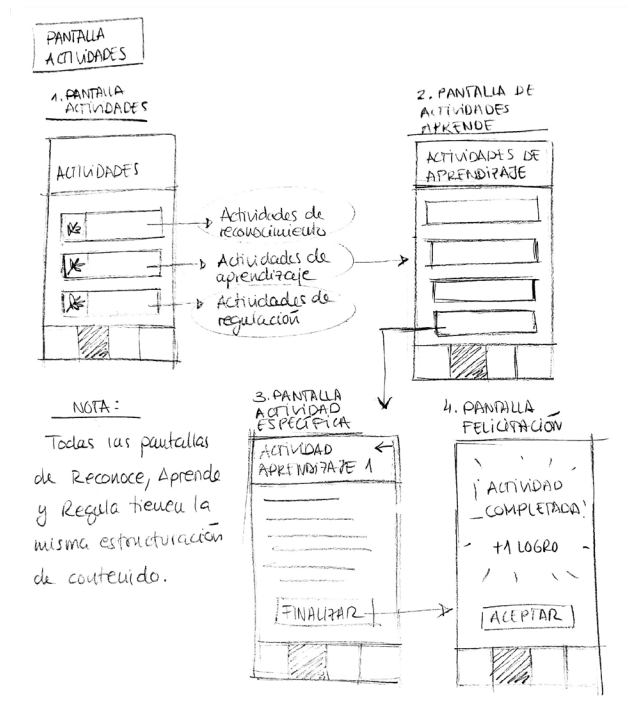 PANTALLA
ACTIVIDADES
1. PANTALLA
ACTIVIDADES
ACTIVIDADES
Actividades de
reconocimiento
Actividades de
aprendizaje
Actividades de
regulación
2. PANTALLA DE
ACTIVIDADES
APRENDE
ACTIVIDADES DE
APRENDIZAJE
NOTA:
Todas las pantallas
de Reconoce, Aprende
y Regula tienen la
misma estructuración
de contenido.
3. PANTALLA
ACTIVIDAD
ESPECÍFICA
ACTIVIDAD
APRENDIZAJE 1
FINALIZAR
4. PANTALLA
FELICITACIÓN
¡ACTIVIDAD
COMPLETADA!
+1 LOGRO
ACEPTAR